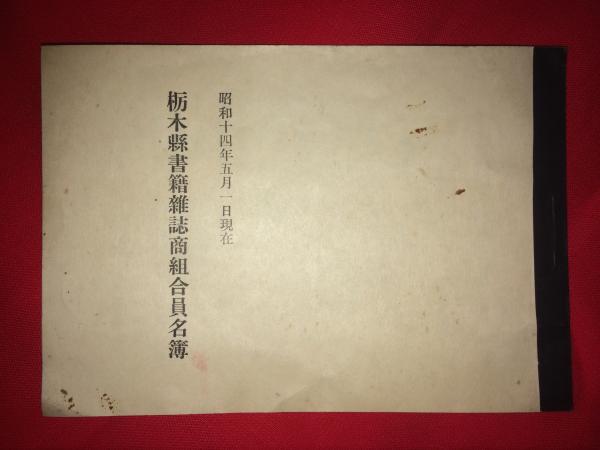 昭和十四年五月一日現在
栃木縣書籍雜誌商組合員名簿